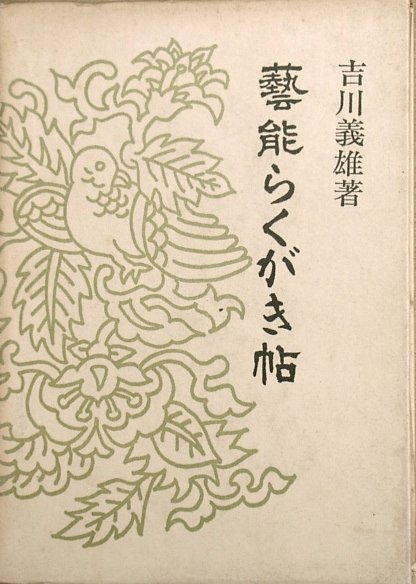 吉川義雄著
藝能らくがき帖